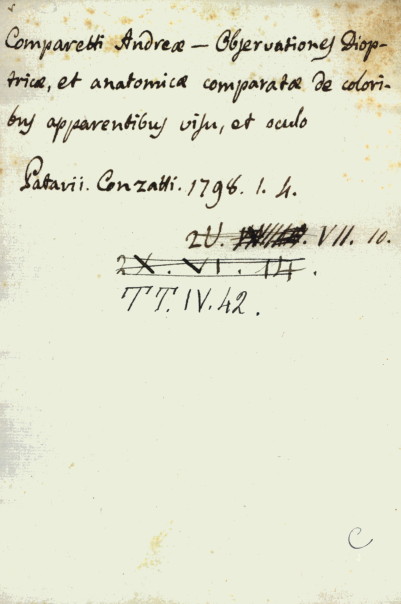 Comparetti Andreæ — Observationes Diop-
tricæ, et anatomicæ comparatæ de colori-
bus apparentibus visu, et oculo
Patavii. Conzatti. 1798. 1. 4.
2U. VII. 10.
2X. VI. 14.
TT. IV. 42.
C